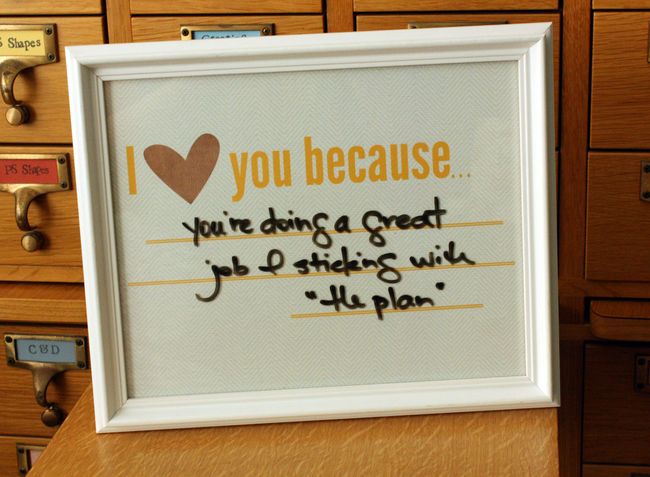 S Shapes
PS Shapes
C&D
I ♥ you because...
you're doing a great
job & sticking with
"the plan"